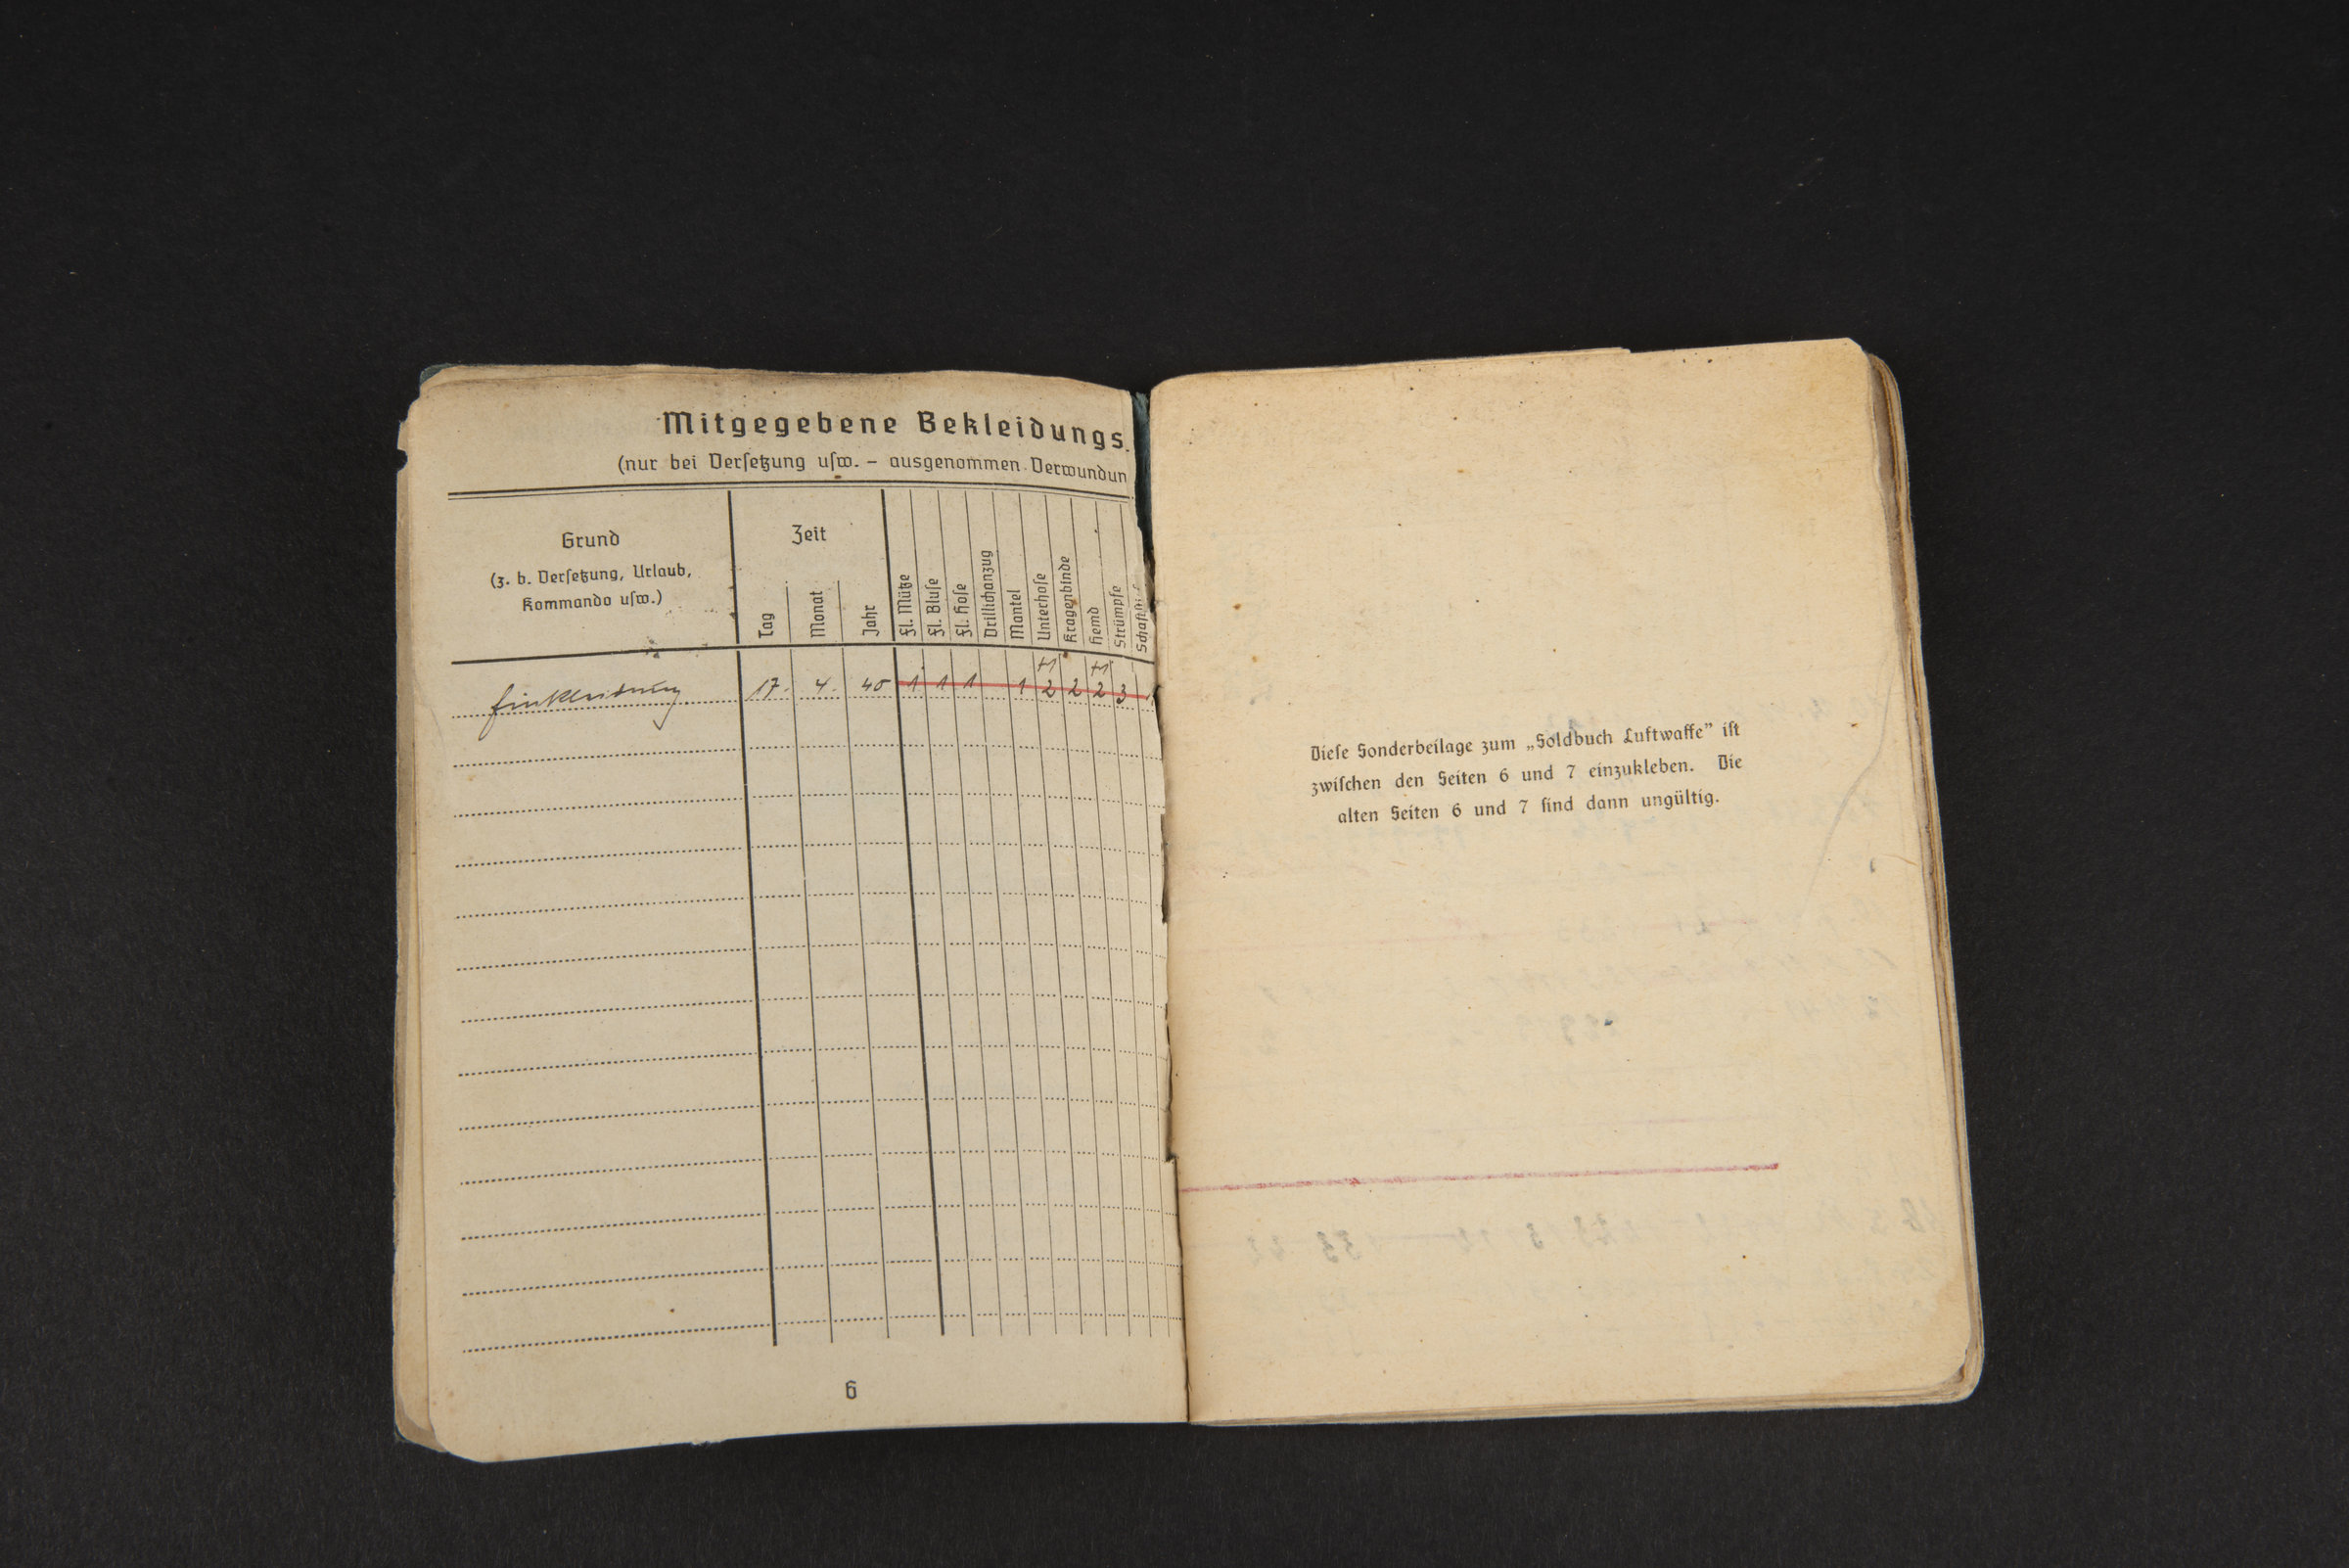 Mitgegebene Bekleidungs
(nur bei Verſetzung uſw. – ausgenommen Verwundun
Grund
(z. b. Verſetzung, Urlaub,
Kommando uſw.)
Zeit
Tag
Monat
Jahr
Fl. Mütze
Fl. Bluſe
Fl. Hoſe
Drillichanzug
Mantel
Unterhoſe
Kragenbinde
Hemd
Strümpfe
Schaftſti
+1 +1
Einkleidung 17. 4. 40 1 1 1 1 2 2 2 3
6
Dieſe Sonderbeilage zum „Soldbuch Luftwaffe” iſt
zwiſchen den Seiten 6 und 7 einzukleben. Die
alten Seiten 6 und 7 ſind dann ungültig.